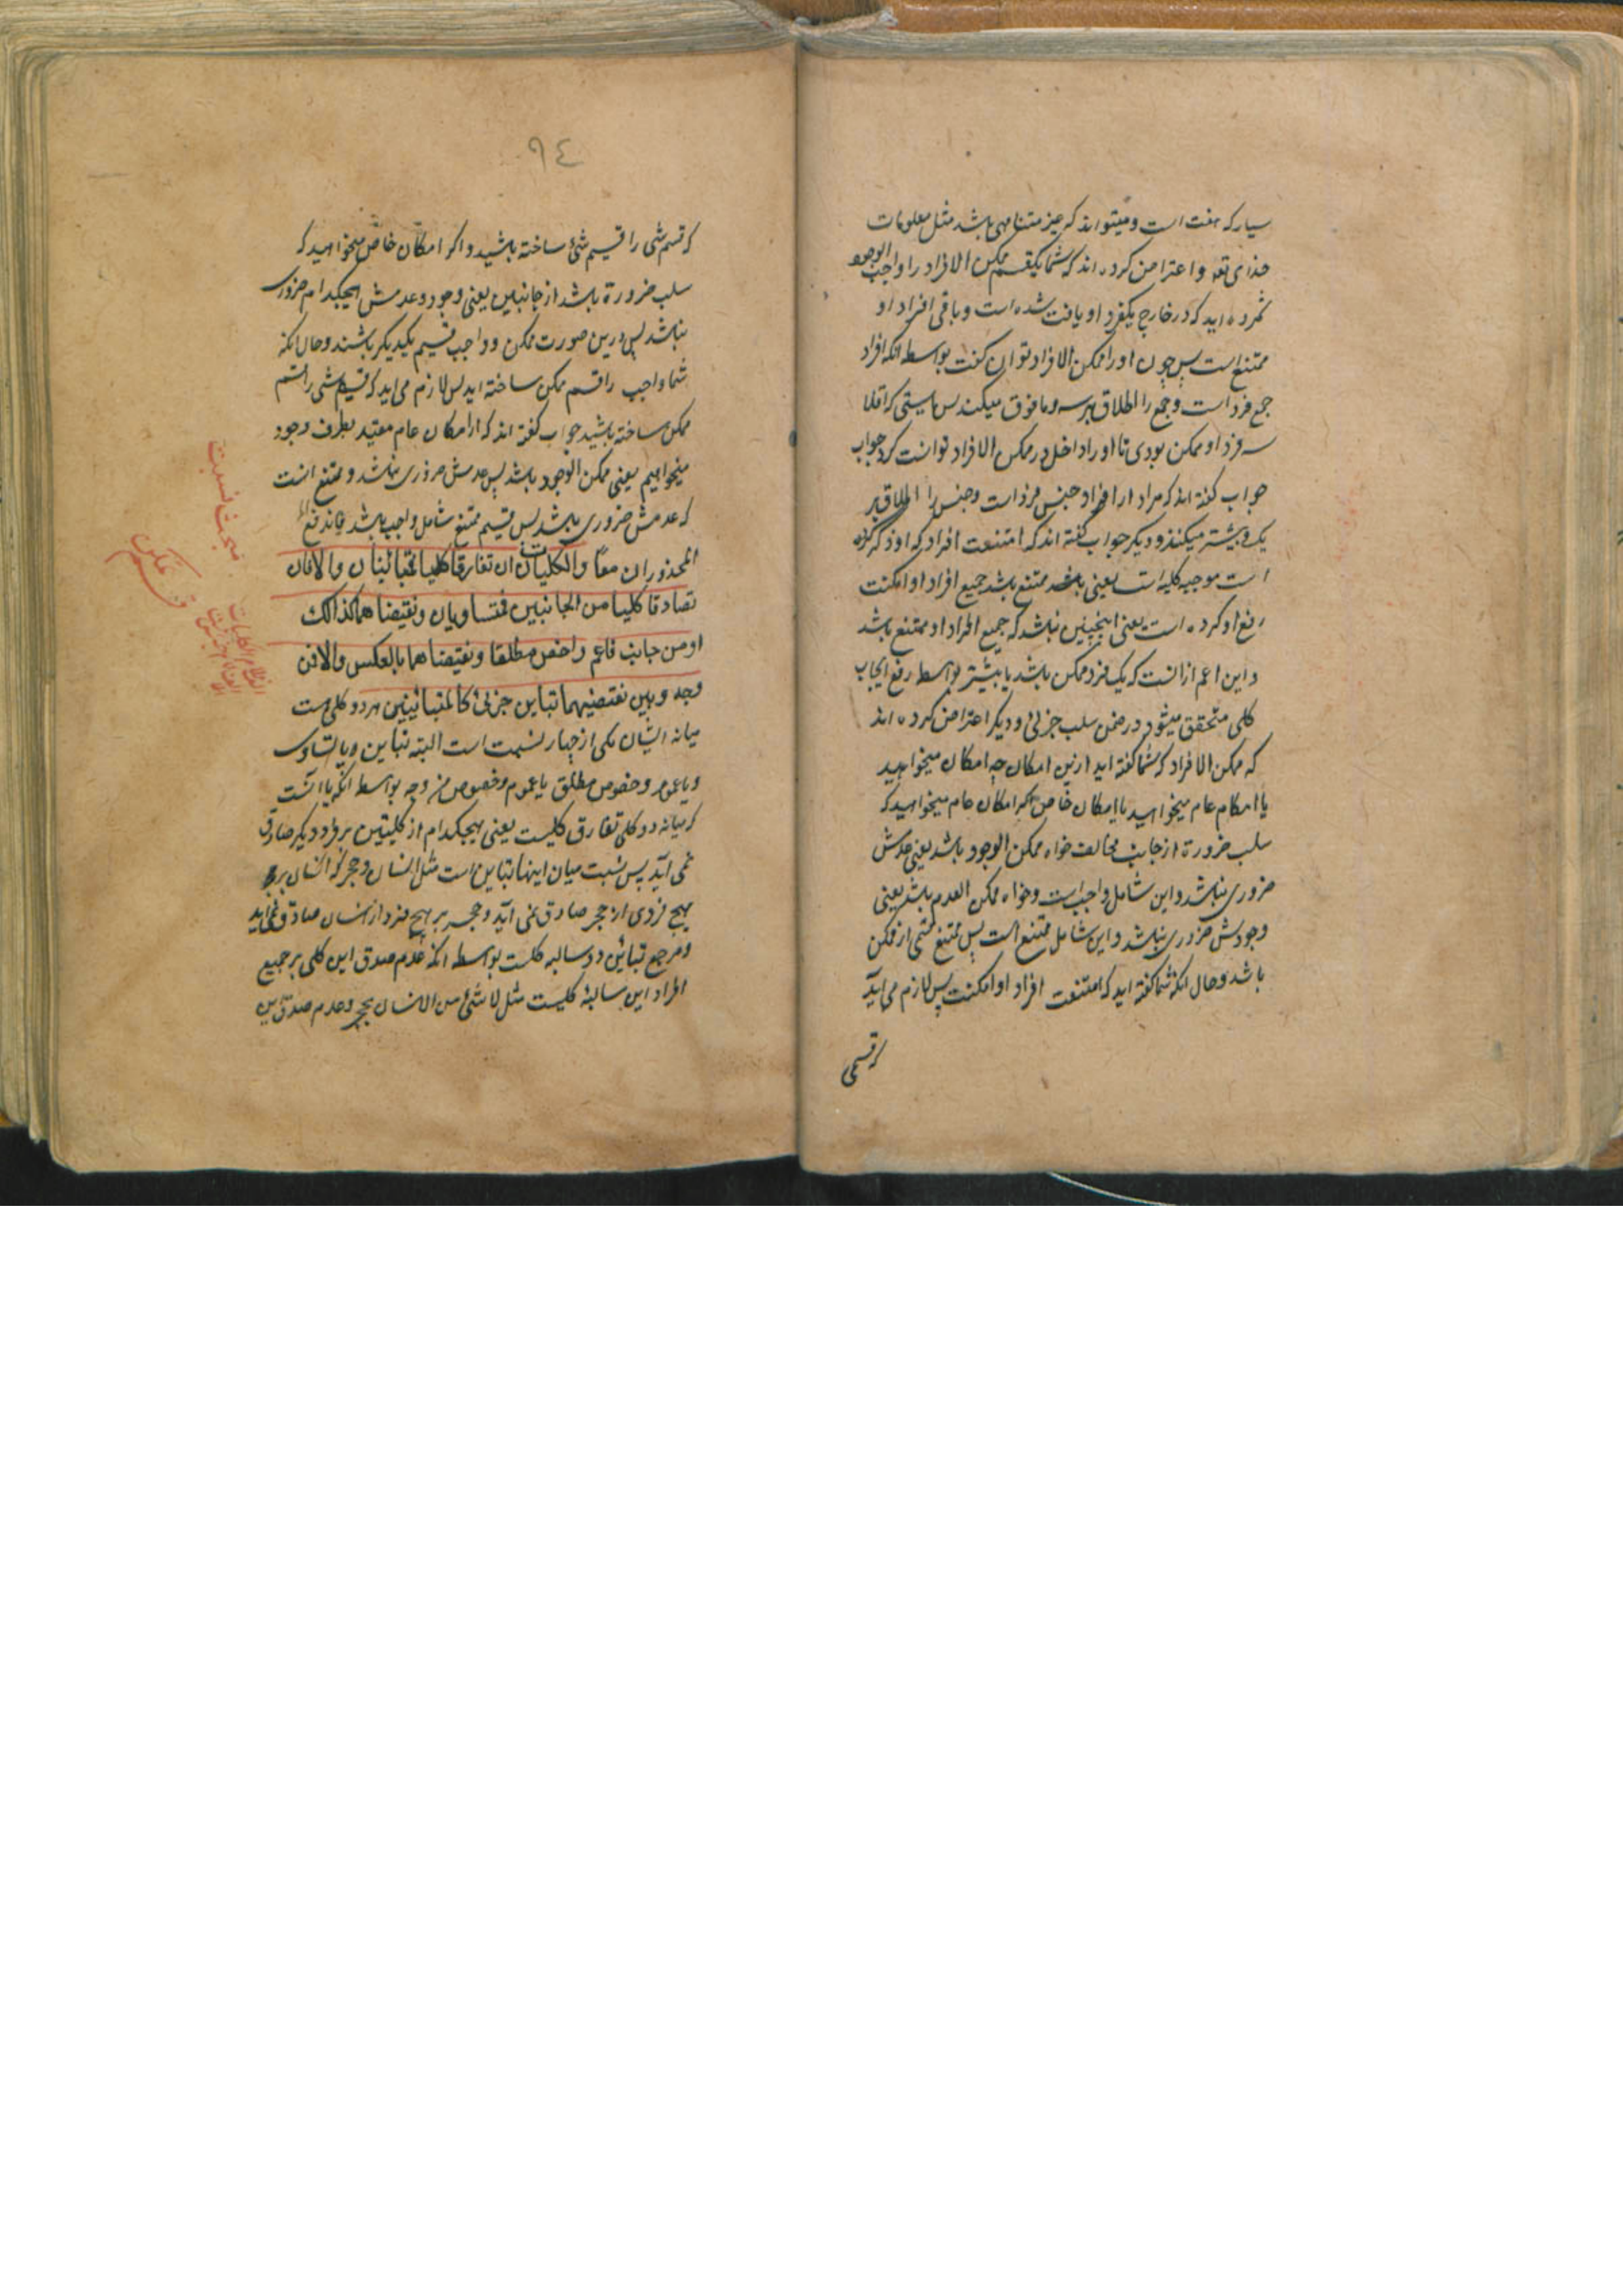 سیارکه هفت است و میتواند که غیر متناهی باشد مثل معلومات
خدای تعه و اعتراض کرده اند که شما یکقسم ممکن الافراد را واجب الوجود
شمرده اید که در خارج یکفرد او یافت شده است و باقی افراد او
ممتنع است پس چون او را ممکن الافراد توان گفت بواسطه انکه افراد
جمع فرد است و جمع را اطلاق بر سه و ما فوق میکنند پس بایستی که اقلا
سه فرد او ممکن بودی تا او را داخل در ممکن الافراد توانست کرد جواب
جواب گفته اند که مراد از افراد جنس فرد است و جنس را اطلاق بر
یک و بیشتر میکنند و دیگر جواب گفته اند که امتنعت افراده که او ذکر کرده
است موجبه کلیه است یعنی ممتنع باشد جمیع افراد او امکنت
رفع او کرده است یعنی اینچنین نباشد که جمیع افراد او ممتنع باشد
و این اعم از انست که یک فرد ممکن باشد یا بیشتر بواسطه رفع ایجاب
کلی متحقق میشود در ضمن سلب جزئی و دیگر اعتراض کرده اند
که ممکن الافراد که شما گفته اید ازین امکان چه امکان میخواهید
یا امکام عام میخواهید یا امکان خاص اکر امکان عام میخواهید که
سلب ضرورة از جانب مخالف خواه ممکن الوجود باشد یعنی عدمش
ضروری نباشد و این شامل واجبست و خواه ممکن العدم باشد یعنی
وجودش ضروری نباشد و این شامل ممتنع است پس ممتنع قسمی از ممکن
باشد و حال انکه شما گفته اید که امتنعت افراده او امکنت پس لازم می آید
که قسمی
٩٤
که قسم شی را قسیم شئ ساخته باشید و اکر امکان خاص میخواهید که
سلب ضرورة باشد از جانبین یعنی وجود و عدمش هیچکدام ضروری
نباشد پس درین صورت ممکن و واجب قسیم یکدیگر باشند و حال انکه
شما واجب را قسم ممکن ساخته اید پس لازم می اید که قسیم شی را قسم
ممکن ساخته باشید جواب گفته اند که از امکان عام مقید بطرف وجود
میخواهیم یعنی ممکن الوجود باشد پس عدمش ضروری نباشد و ممتنع انست
که عدمش ضروری باشد پس قسیم ممتنع شامل واجب باشد فاندفع
المحذوران معًا والکلیان ان تفارقا کلیا فمتباینان والا فان
تصادقا کلیا من الجانبین فمتساویان و نقیضاهما کذالک
او من جانب فاعم واخص مطلقا و نقیضاهما بالعکس والا فمن
وجه و بین نقیضیهما تباین جزئی کالمتباینین هر دو کلی هست
میانه ایشان یکی از چهار نسبت است البته تباین و یا تساوی
و یا عموم و خصوص مطلق یا عموم و خصوص من وجه بواسطه انکه یا انست
که میانه دو کلی تفارق کلیست یعنی هیچکدام از کلیتین بر افراد دیگر صادق
نمی آید پس نسبت میان اینها تباین است مثل انسان و حجر که انسان بر
هیچ فردی از حجر صادق نمی آید و حجر بر هیچ فرد از انسان صادق نمی اید
و مرجع تباین دو سالبه کلیست بواسطه انکه عدم صدق این کلی بر جمیع
افراد این سالبه کلیست مثل لا شئ من الانسان بحجر و عدم صدق این
مبحث نسبت